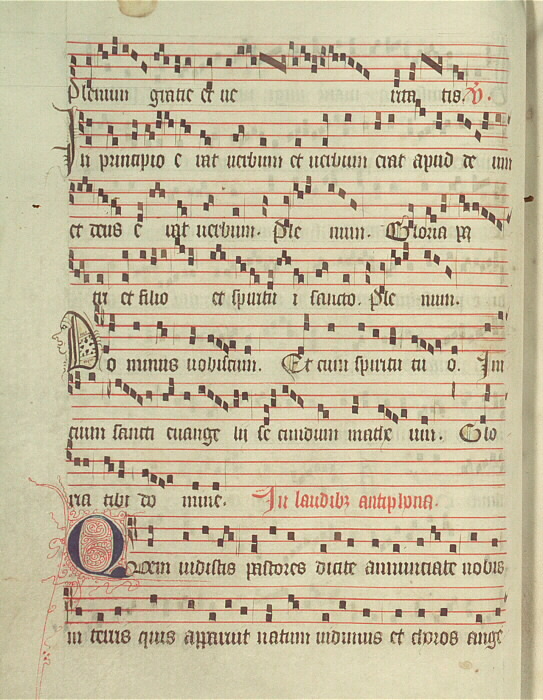 plenum gratie et ue rita tis. V.
In principio e rat uerbum et uerbum erat apud de um
et deus e rat uerbum. Ple num. Gloria pa
tri et filio et spiritu i sancto. Ple num.
Do minus uobiscum. Et cum spiritu tu o. Ini
cium sancti euange lii se cundum mathe um. Glo
ria tibi do mine. In laudibz antiphona.
Quem uidistis pastores dicite annunciate nobis
in terris quis apparuit natum uidimus et choros ange